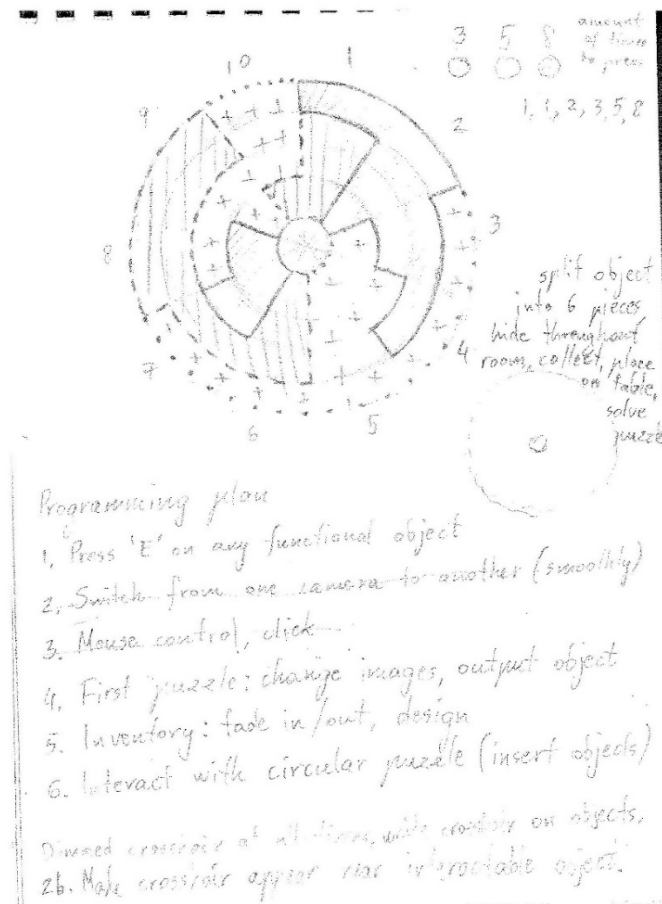 3 5 8
amount
of times
to press
1, 1, 2, 3, 5, 8
10 1
9 2
8 3
7 4
6 5
split object
into 6 pieces
hide throughout
room, collect, place
on table,
solve
puzzle
Programming plan
1. Press 'E' on any functional object
2. Switch from one camera to another (smoothly)
3. Mouse control, click
4. First puzzle: change images, output object
5. Inventory: fade in/out, design
6. Interact with circular puzzle (insert objects)
Dimmed crosshair at all times, wide crosshair on objects,
2b. Make crosshair appear near interactable object.